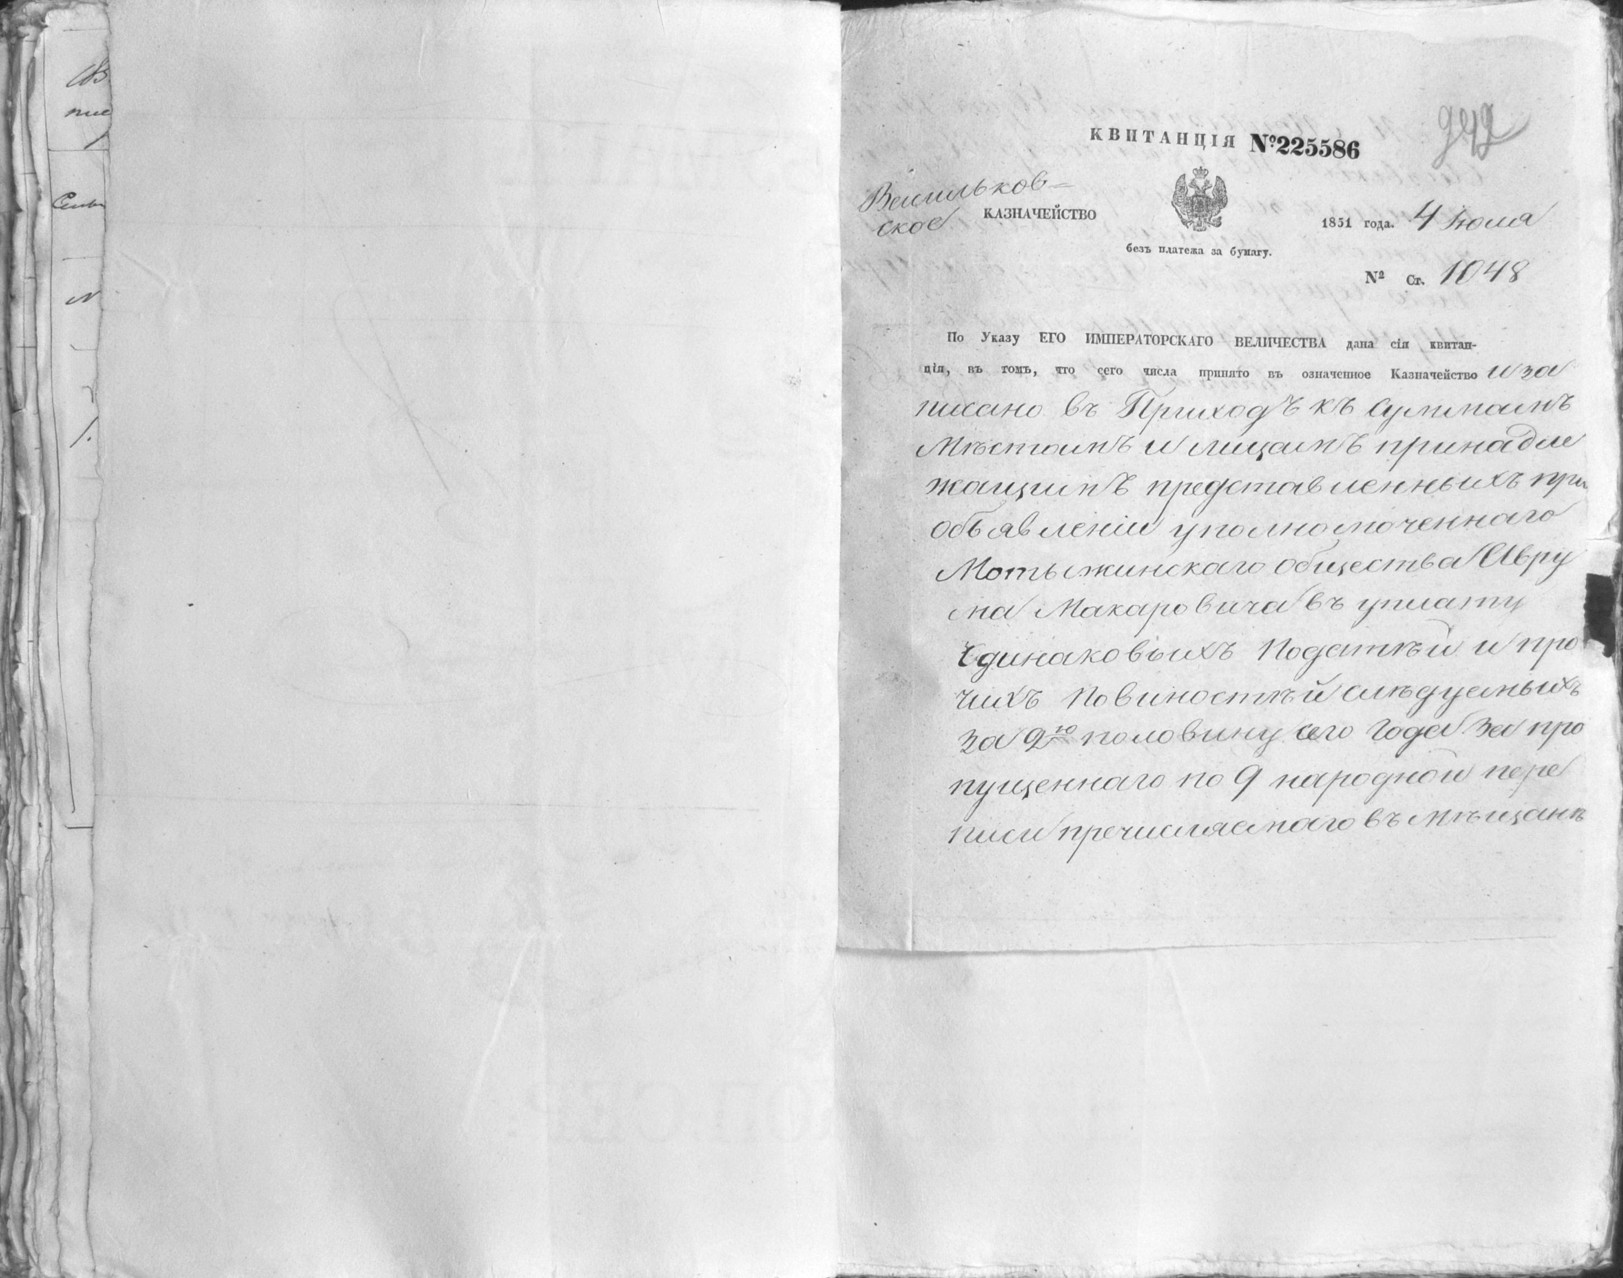 КВИТАНЦІЯ №225586
942
Васильков-
ское КАЗНАЧЕЙСТВО
1851 года. 4 Іюля
безъ платежа за бумагу.
№ Ст. 1048
По Указу ЕГО ИМПЕРАТОРСКАГО ВЕЛИЧЕСТВА дана сія квитан-
ція, въ томъ, что сего числа принято въ означенное Казначейство и за
писано въ Приходъ къ суммамъ
Мѣстамъ и лицамъ принадле
жащимъ представленныхъ при
объявленіи уполномоченнаго
Мотыжинскаго общества Авру
ма Макаровича въ уплату
Единаковыхъ Податѣй и про
чихъ Повиностѣй слѣдуемыхъ
за 2ю половину сего года за про
пущеннаго по 9 народной пере
писи пречисляемаго въ мѣщанѣ